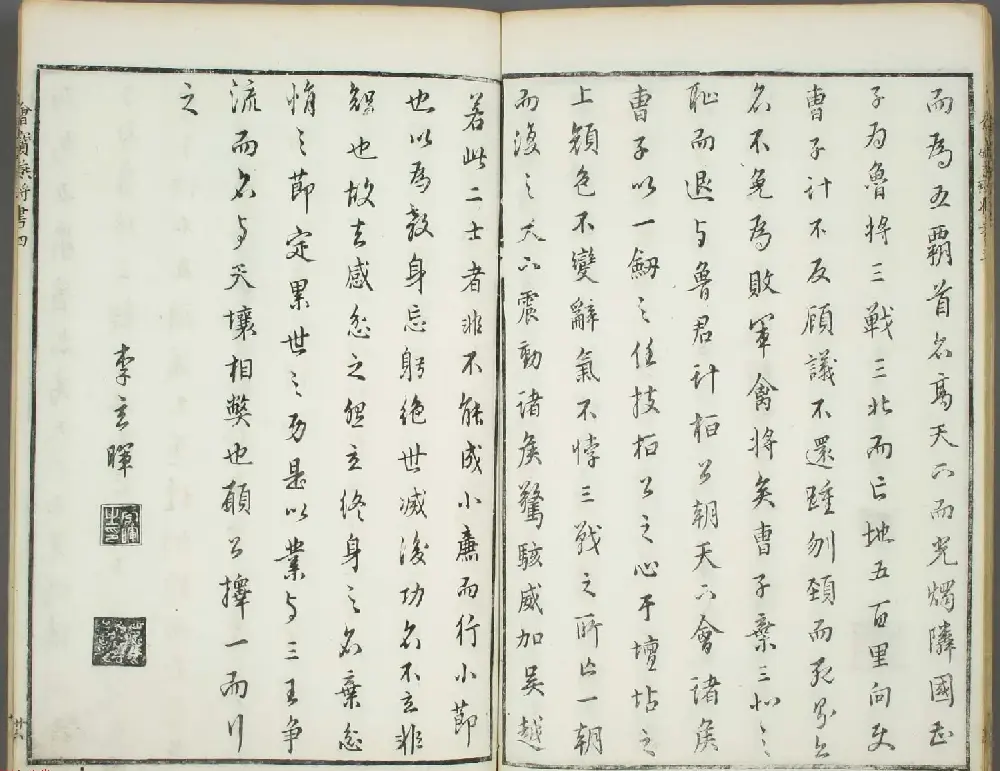 而為五霸首名髙天下而光燭隣國曹
子為魯將三戰三北而亡地五百里向使
曹子計不反顧議不還踵刎頚而死則亦
名不免為敗軍禽將矣曹子棄三北之
恥而退与魯君計桓公朝天下會諸侯
曹子以一劔之任技桓公之心于壇坫之
上顔色不變辭氣不悖三戰之所亡一朝
而復之天下震動諸侯驚駭威加吴越
若此二士者非不能成小亷而行小節
也以為殺身忘躬絶世滅後功名不立非
智也故去感忿之怨立終身之名棄忿
悁之節定累世之功是以業与三王争
流而名与天壤相弊也願公擇一而行
之
李玄暉